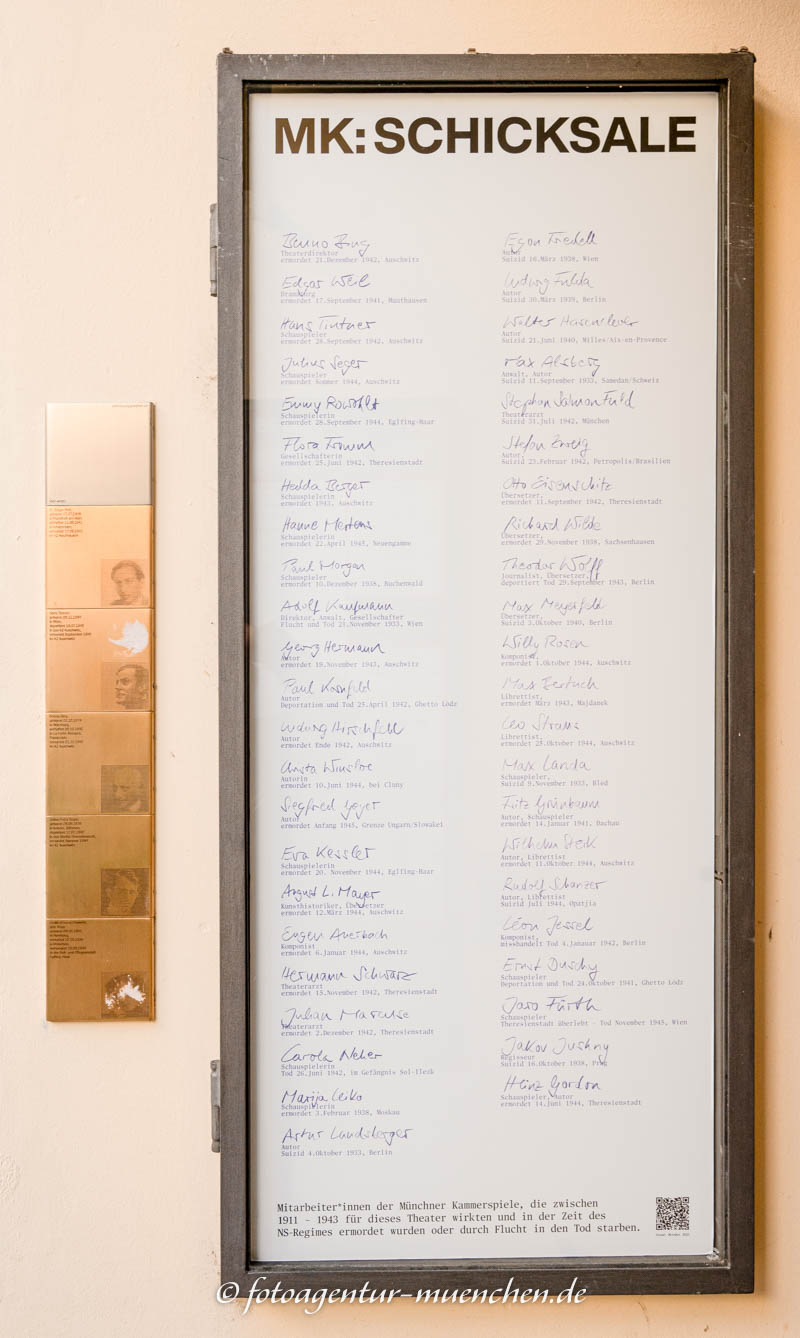 MK: SCHICKSALE
Benno Bing
Theaterdirektor
ermordet 21.Dezember 1942, Auschwitz
Edgar Weil
Dramaturg
ermordet 17.September 1941, Mauthausen
Hans Tintner
Schauspieler
ermordet 28.September 1942, Auschwitz
Julius Seger
Schauspieler
ermordet Sommer 1944, Auschwitz
Emmy Rowohlt
Schauspielerin
ermordet 28.September 1944, Eglfing-Haar
Flora Fromm
Gesellschafterin
ermordet 25.Juni 1942, Theresienstadt
Hedda Berger
Schauspielerin
ermordet 1943, Auschwitz
Hanne Mertens
Schauspielerin
ermordet 22.April 1945, Neuengamme
Paul Morgan
Schauspieler
ermordet 10.Dezember 1938, Buchenwald
Adolf Kaufmann
Direktor, Anwalt, Gesellschafter
Flucht und Tod 21.November 1933, Wien
Georg Hermann
Autor
ermordet 19.November 1943, Auschwitz
Paul Kornfeld
Autor
Deportation und Tod 25.April 1942, Ghetto Lódz
Ludwig Hirschfeld
Autor
ermordet Ende 1942, Auschwitz
Christa Winsloe
Autorin
ermordet 10.Juni 1944, bei Cluny
Siegfried Geyer
Autor
ermordet Anfang 1945, Grenze Ungarn/Slowakei
Eva Kessler
Schauspielerin
ermordet 20. November 1944, Eglfing-Haar
August L. Mayer
Kunsthistoriker, Übersetzer
ermordet 12.März 1944, Auschwitz
Eugen Auerbach
Komponist
ermordet 6.Januar 1944, Auschwitz
Hermann Schwarz
Theaterarzt
ermordet 15.November 1942, Theresienstadt
Julian Marcuse
Theaterarzt
ermordet 2.Dezember 1942, Theresienstadt
Carola Neher
Schauspielerin
Tod 26.Juni 1942, im Gefängnis Sol-Ilezk
Marija Leiko
Schauspielerin
ermordet 3.Februar 1938, Moskau
Artur Landsberger
Autor
Suizid 4.Oktober 1933, Berlin
Egon Friedell
Autor
Suizid 16.März 1938, Wien
Ludwig Fulda
Autor
Suizid 30.März 1939, Berlin
Walter Hasenclever
Autor
Suizid 21.Juni 1940, Milles/Aix-en-Provence
Max Alsberg
Anwalt, Autor
Suizid 11.September 1933, Samedan/Schweiz
Stephan Salman Fuld
Theaterarzt
Suizid 31.Juli 1942, München
Stefan Zweig
Autor,
Suizid 23.Februar 1942, Petropolis/Brasilien
Otto Eisenschitz
Übersetzer,
ermordet 11.September 1942, Theresienstadt
Richard Wilde
Übersetzer,
ermordet 29.November 1938, Sachsenhausen
Theodor Wolff
Journalist, Übersetzer,
deportiert Tod 29.September 1943, Berlin
Max Meyerfeld
Übersetzer,
Suizid 3.Oktober 1940, Berlin
Willy Rosen
Komponist,
ermordet 1.Oktober 1944, Auschwitz
Max Bertuch
Librettist,
ermordet März 1943, Majdanek
Leo Straus
Librettist,
ermordet 28.Oktober 1944, Auschwitz
Max Landa
Schauspieler,
Suizid 9.November 1933, Bled
Fritz Grünbaum
Autor, Schauspieler
ermordet 14.Januar 1941, Dachau
Wilhelm Sterk
Autor, Librettist
ermordet 11.Oktober 1944, Auschwitz
Rudolf Schanzer
Autor, Librettist
Suizid Juli 1944, Opatjia
Léon Jessel
Komponist,
misshandelt Tod 4.Janauar 1942, Berlin
Ernst Duschy
Schauspieler
Deportation und Tod 24.Oktober 1941, Ghetto Lódz
Jaro Fürth
Schauspieler
Theresienstadt überlebt - Tod November 1945, Wien
Jakov Jushny
Regisseur
Suizid 16.Oktober 1938, Prag
Heinz Gordon
Schauspieler, Autor
ermordet 14.Juni 1944, Theresienstadt
Mitarbeiter*innen der Münchner Kammerspiele, die zwischen
1911 - 1943 für dieses Theater wirkten und in der Zeit des
NS-Regimes ermordet wurden oder durch Flucht in den Tod starben.
© fotoagentur-muenchen.de